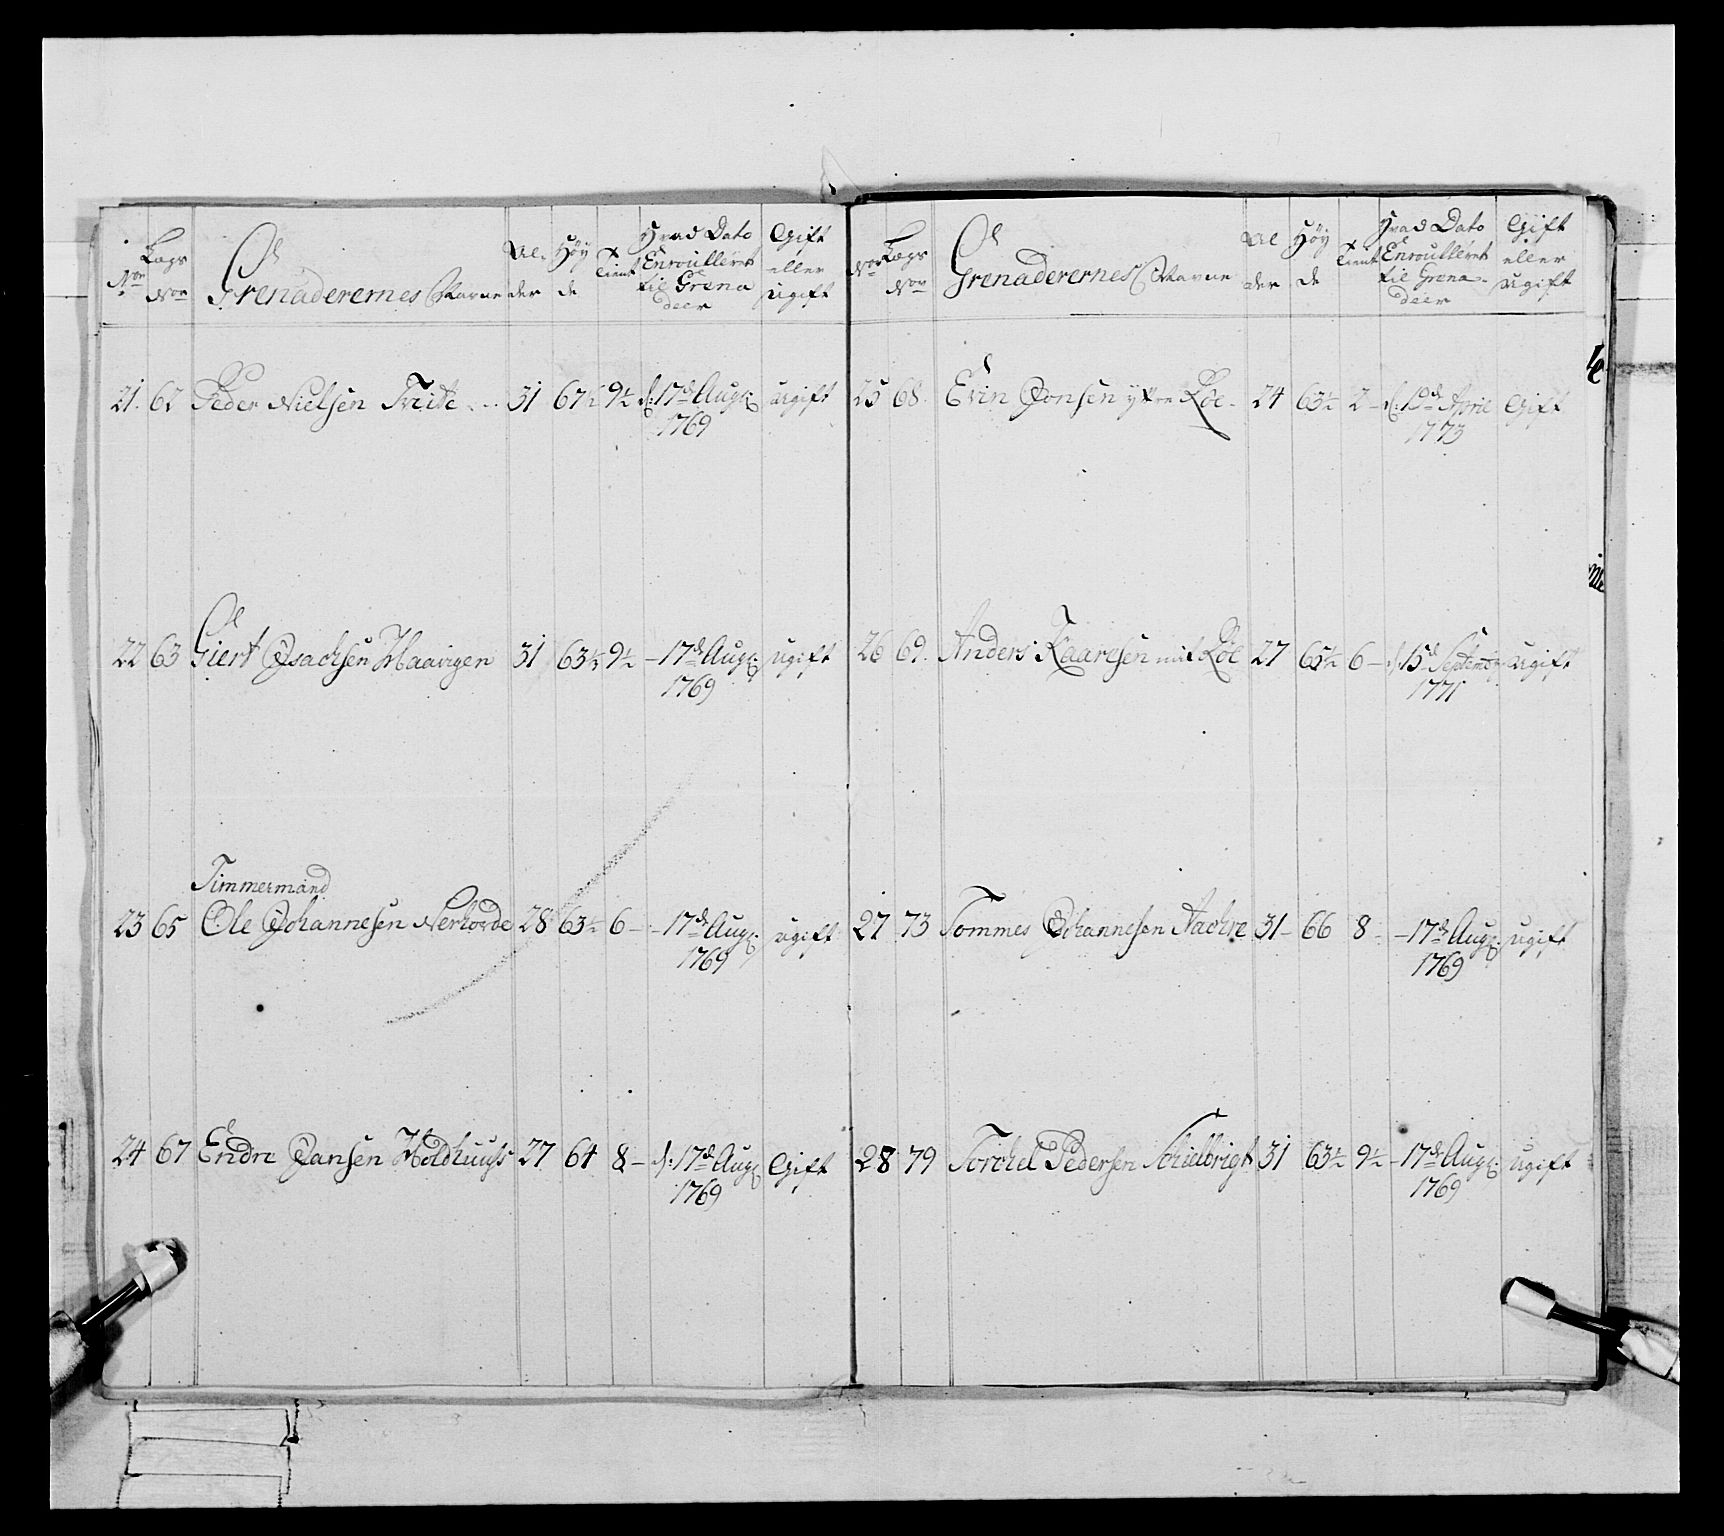 Nor Lægs Nor Grenaderernes Navne Al- der Høy de Tient Hvad Dato Enroulleret til Grena deer Gift eller ugift
21. 62 Peder Nielsen Tveite 31 67½ 9½ d: 17de Aug: 1769 ugift
22 63 Giert Isachsen Haavigen 31 63½ 9½ - 17de Aug: 1769 ugift
Timmermand
23 65 Ole Johannesen Nerhovde 28 63½ 6 - - 17de Aug: 1769 ugift
24 67 Endre Jansen Holdhuus 27 64 8 - d: 17de Aug: 1769 Gift
Nor Lægs Nor Grenaderernes Navne Al der Høy de Tient Hvad Dato Enroulleret til Grena- deer Gift eller ugift
25 68. Evin Jonsen yttre Røe - 24 63½ 2 - d: 19de April 1773 Gift
26 69. Anders Kaaresen mit Røe 27 65½ 6 - d: 15de Septembr 1771 ugift
27 73 Tommes Johannesen Aachre 31 - 66 8 - - 17de Aug: 1769 ugift
28 79 Torchel Pedersen Schielbrigt 31 63½ 9½ - 17de Aug: 1769 ugift